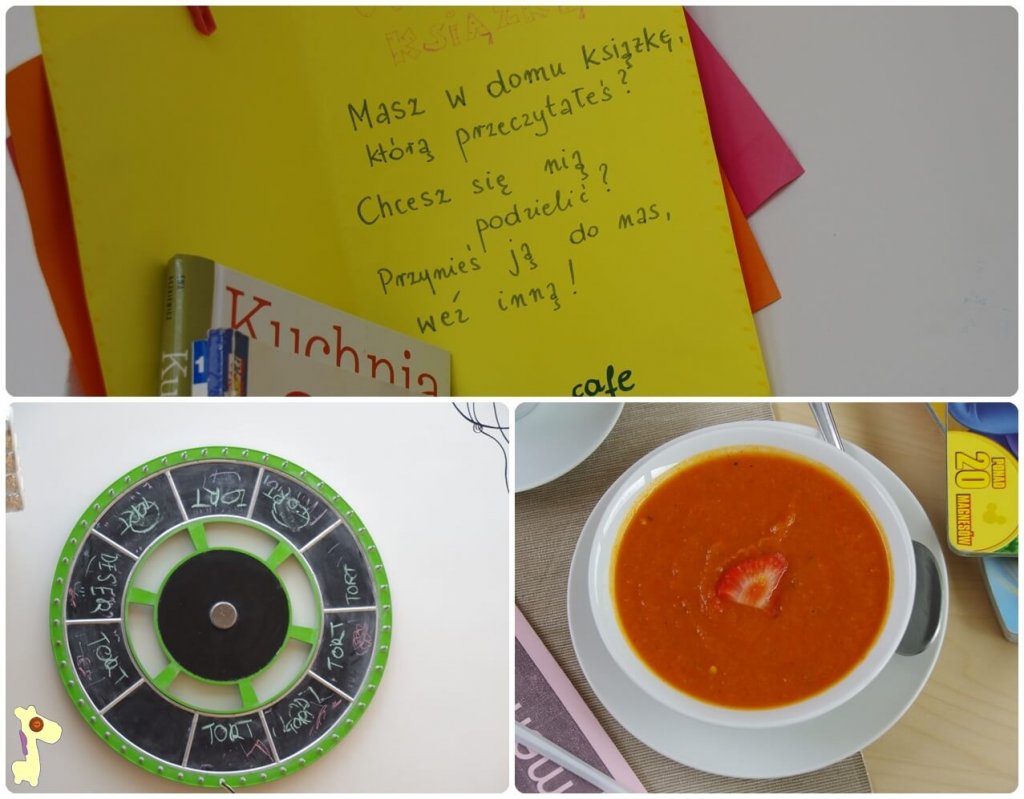 KSIĄŻKĘ
Masz w domu książkę,
którą przeczytałeś?
Chcesz się nią
podzielić?
Przynieś ją do nas,
weź inną!
cafe
Kuchnia
Ku
1
TORT
TORT
TORT
DESER
TORT
TORT
TORT
TORT
PONAD
20
MAGNESÓW